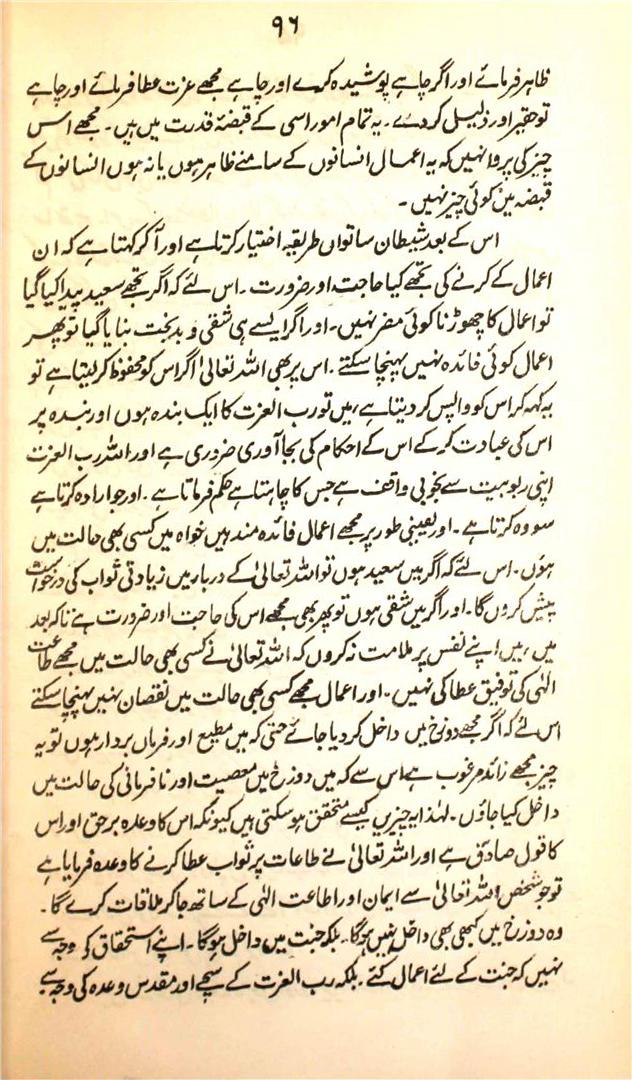 ۹۶
ظاہر فرمائے اور اگر چاہے پوشیدہ کرے اور چاہے مجھے عزت عطا فرمائے اور چاہے
تو حقیر اور ذلیل کر دے۔ یہ تمام امور اسی کے قبضۂ قدرت میں ہیں۔ مجھے اس
چیز کی پروا نہیں کہ یہ اعمال انسانوں کے سامنے ظاہر ہوں یا نہ ہوں انسانوں کے
قبضہ میں کوئی چیز نہیں۔
اس کے بعد شیطان ساتواں طریقہ اختیار کرتا ہے اور آکر کہتا ہے کہ ان
اعمال کے کرنے کی تجھے کیا حاجت اور ضرورت۔ اس لئے کہ اگر تجھے سعید پیدا کیا گیا
تو اعمال کا چھوڑنا کوئی مضر نہیں۔ اور اگر ایسے ہی شقی و بدبخت بنایا گیا تو پھر
اعمال کوئی فائدہ نہیں پہنچا سکتے۔ اس پر بھی اللہ تعالیٰ اگر اس کو محفوظ کر لیتا ہے تو
یہ کہہ کر اس کو واپس کر دیتا ہے، میں تو رب العزت کا ایک بندہ ہوں اور بندہ پر
اس کی عبادت کر کے اس کے احکام کی بجا آوری ضروری ہے اور اللہ رب العزت
اپنی ربوبیت سے بخوبی واقف ہے جس کا چاہتا ہے حکم فرماتا ہے۔ اور جو ارادہ کرتا ہے
سو وہ کرتا ہے۔ اور یقینی طور پر مجھے اعمال فائدہ مند ہیں خواہ میں کسی بھی حالت میں
ہوں۔ اس لئے کہ اگر میں سعید ہوں تو اللہ تعالیٰ کے دربار میں زیادتی ثواب کی درخواست
پیش کروں گا۔ اور اگر میں شقی ہوں تو پھر بھی مجھے اس کی حاجت اور ضرورت ہے تاکہ بعد
میں، میں اپنے نفس پر ملامت نہ کروں کہ اللہ تعالیٰ نے کسی بھی حالت میں مجھے طاعت
الٰہی کی توفیق عطا کی نہیں۔ اور اعمال مجھے کسی بھی حالت میں نقصان نہیں پہنچا سکتے
اس لئے کہ اگر مجھے دوزخ میں داخل کر دیا جائے حتی کہ میں مطیع اور فرماں بردار ہوں تو یہ
چیز مجھے زائد مرغوب ہے اس سے کہ میں دوزخ میں معصیت اور نافرمانی کی حالت میں
داخل کیا جاؤں۔ لہٰذا یہ چیزیں کیسے متحقق ہو سکتی ہیں کیونکہ اس کا وعدہ برحق اور اس
کا قول صادق ہے اور اللہ تعالیٰ نے طاعات پر ثواب عطا کرنے کا وعدہ فرمایا ہے
تو جو شخص اللہ تعالیٰ سے ایمان اور اطاعت الٰہی کے ساتھ جا کر ملاقات کرے گا۔
وہ دوزخ میں کبھی بھی داخل نہیں ہوگا۔ بلکہ جنت میں داخل ہوگا۔ اپنے استحقاق کی وجہ سے
نہیں کہ جنت کے لئے اعمال کئے۔ بلکہ رب العزت کے سچے اور مقدس وعدہ کی وجہ سے